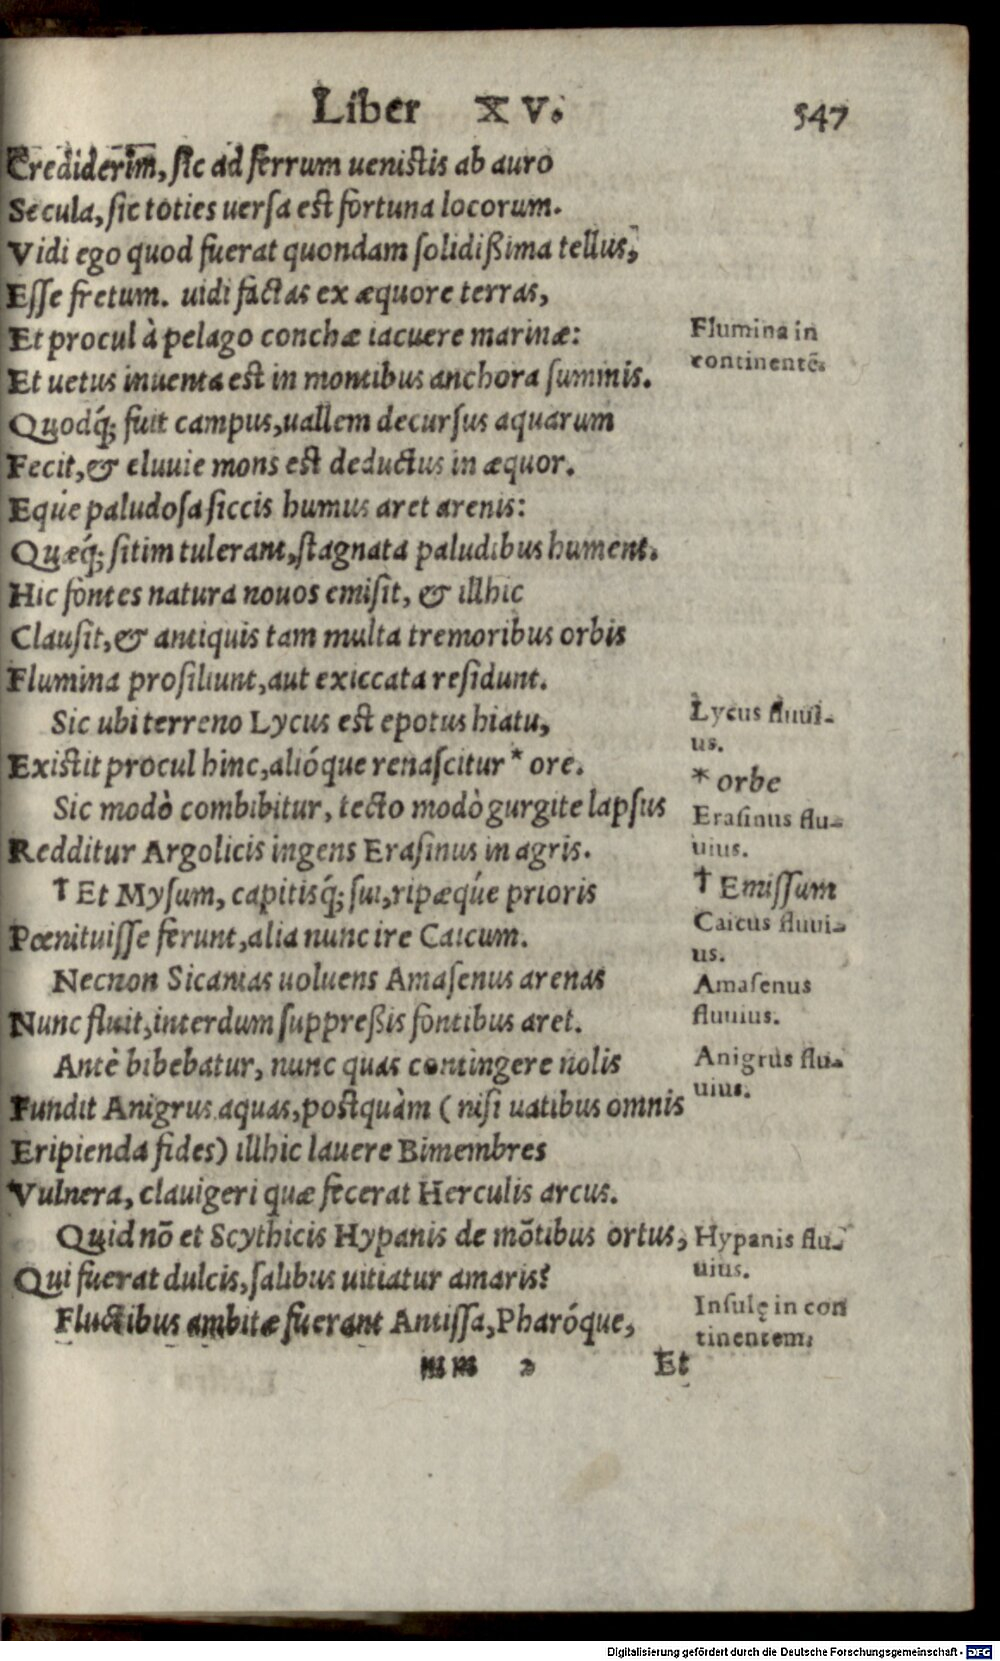 Liber XV. 547
Crediderim, sic ad ferrum uenistis ab auro
Secula, sic toties uersa est fortuna locorum.
Vidi ego quod fuerat quondam solidißima tellus,
Esse fretum. uidi factas ex æquore terras,
Et procul à pelago conchæ iacuere marinæ:
Et uetus inuenta est in montibus anchora summis.
Quodq́; fuit campus, uallem decursus aquarum
Fecit, & eluuie mons est deductus in æquor.
Eque paludosa siccis humus aret arenis:
Quæq́; sitim tulerant, stagnata paludibus hument.
Hic fontes natura nouos emisit, & illhic
Clausit, & antiquis tam multa tremoribus orbis
Flumina prosiliunt, aut exiccata residunt.
Sic ubi terreno Lycus est epotus hiatu,
Existit procul hinc, alióque renascitur * ore.
Sic modò combibitur, tecto modò gurgite lapsus
Redditur Argolicis ingens Erasinus in agris.
† Et Mysum, capitisq́; sui, ripæq́ue prioris
Pœnituisse ferunt, alia nunc ire Caicum.
Necnon Sicanias uoluens Amasenus arenas
Nunc fluit, interdum suppreßis fontibus aret.
Antè bibebatur, nunc quas contingere nolis
Fundit Anigrus aquas, postquàm (nisi uatibus omnis
Eripienda fides) illhic lauere Bimembres
Vulnera, clauigeri quæ fecerat Herculis arcus.
Quid nō et Scythicis Hypanis de mōtibus ortus,
Qui fuerat dulcis, salibus uitiatur amaris?
Fluctibus ambitæ fuerant Antissa, Pharóque,
mm 2 Et
Flumina in
continentē.
Lycus fluui-
us.
* orbe
Erasinus flu-
uius.
† Emissum
Caicus fluui-
us.
Amasenus
fluuius.
Anigrus flu-
uius.
Hypanis flu-
uius.
Insulę in con
tinentem.
Digitalisierung gefördert durch die Deutsche Forschungsgemeinschaft - DFG